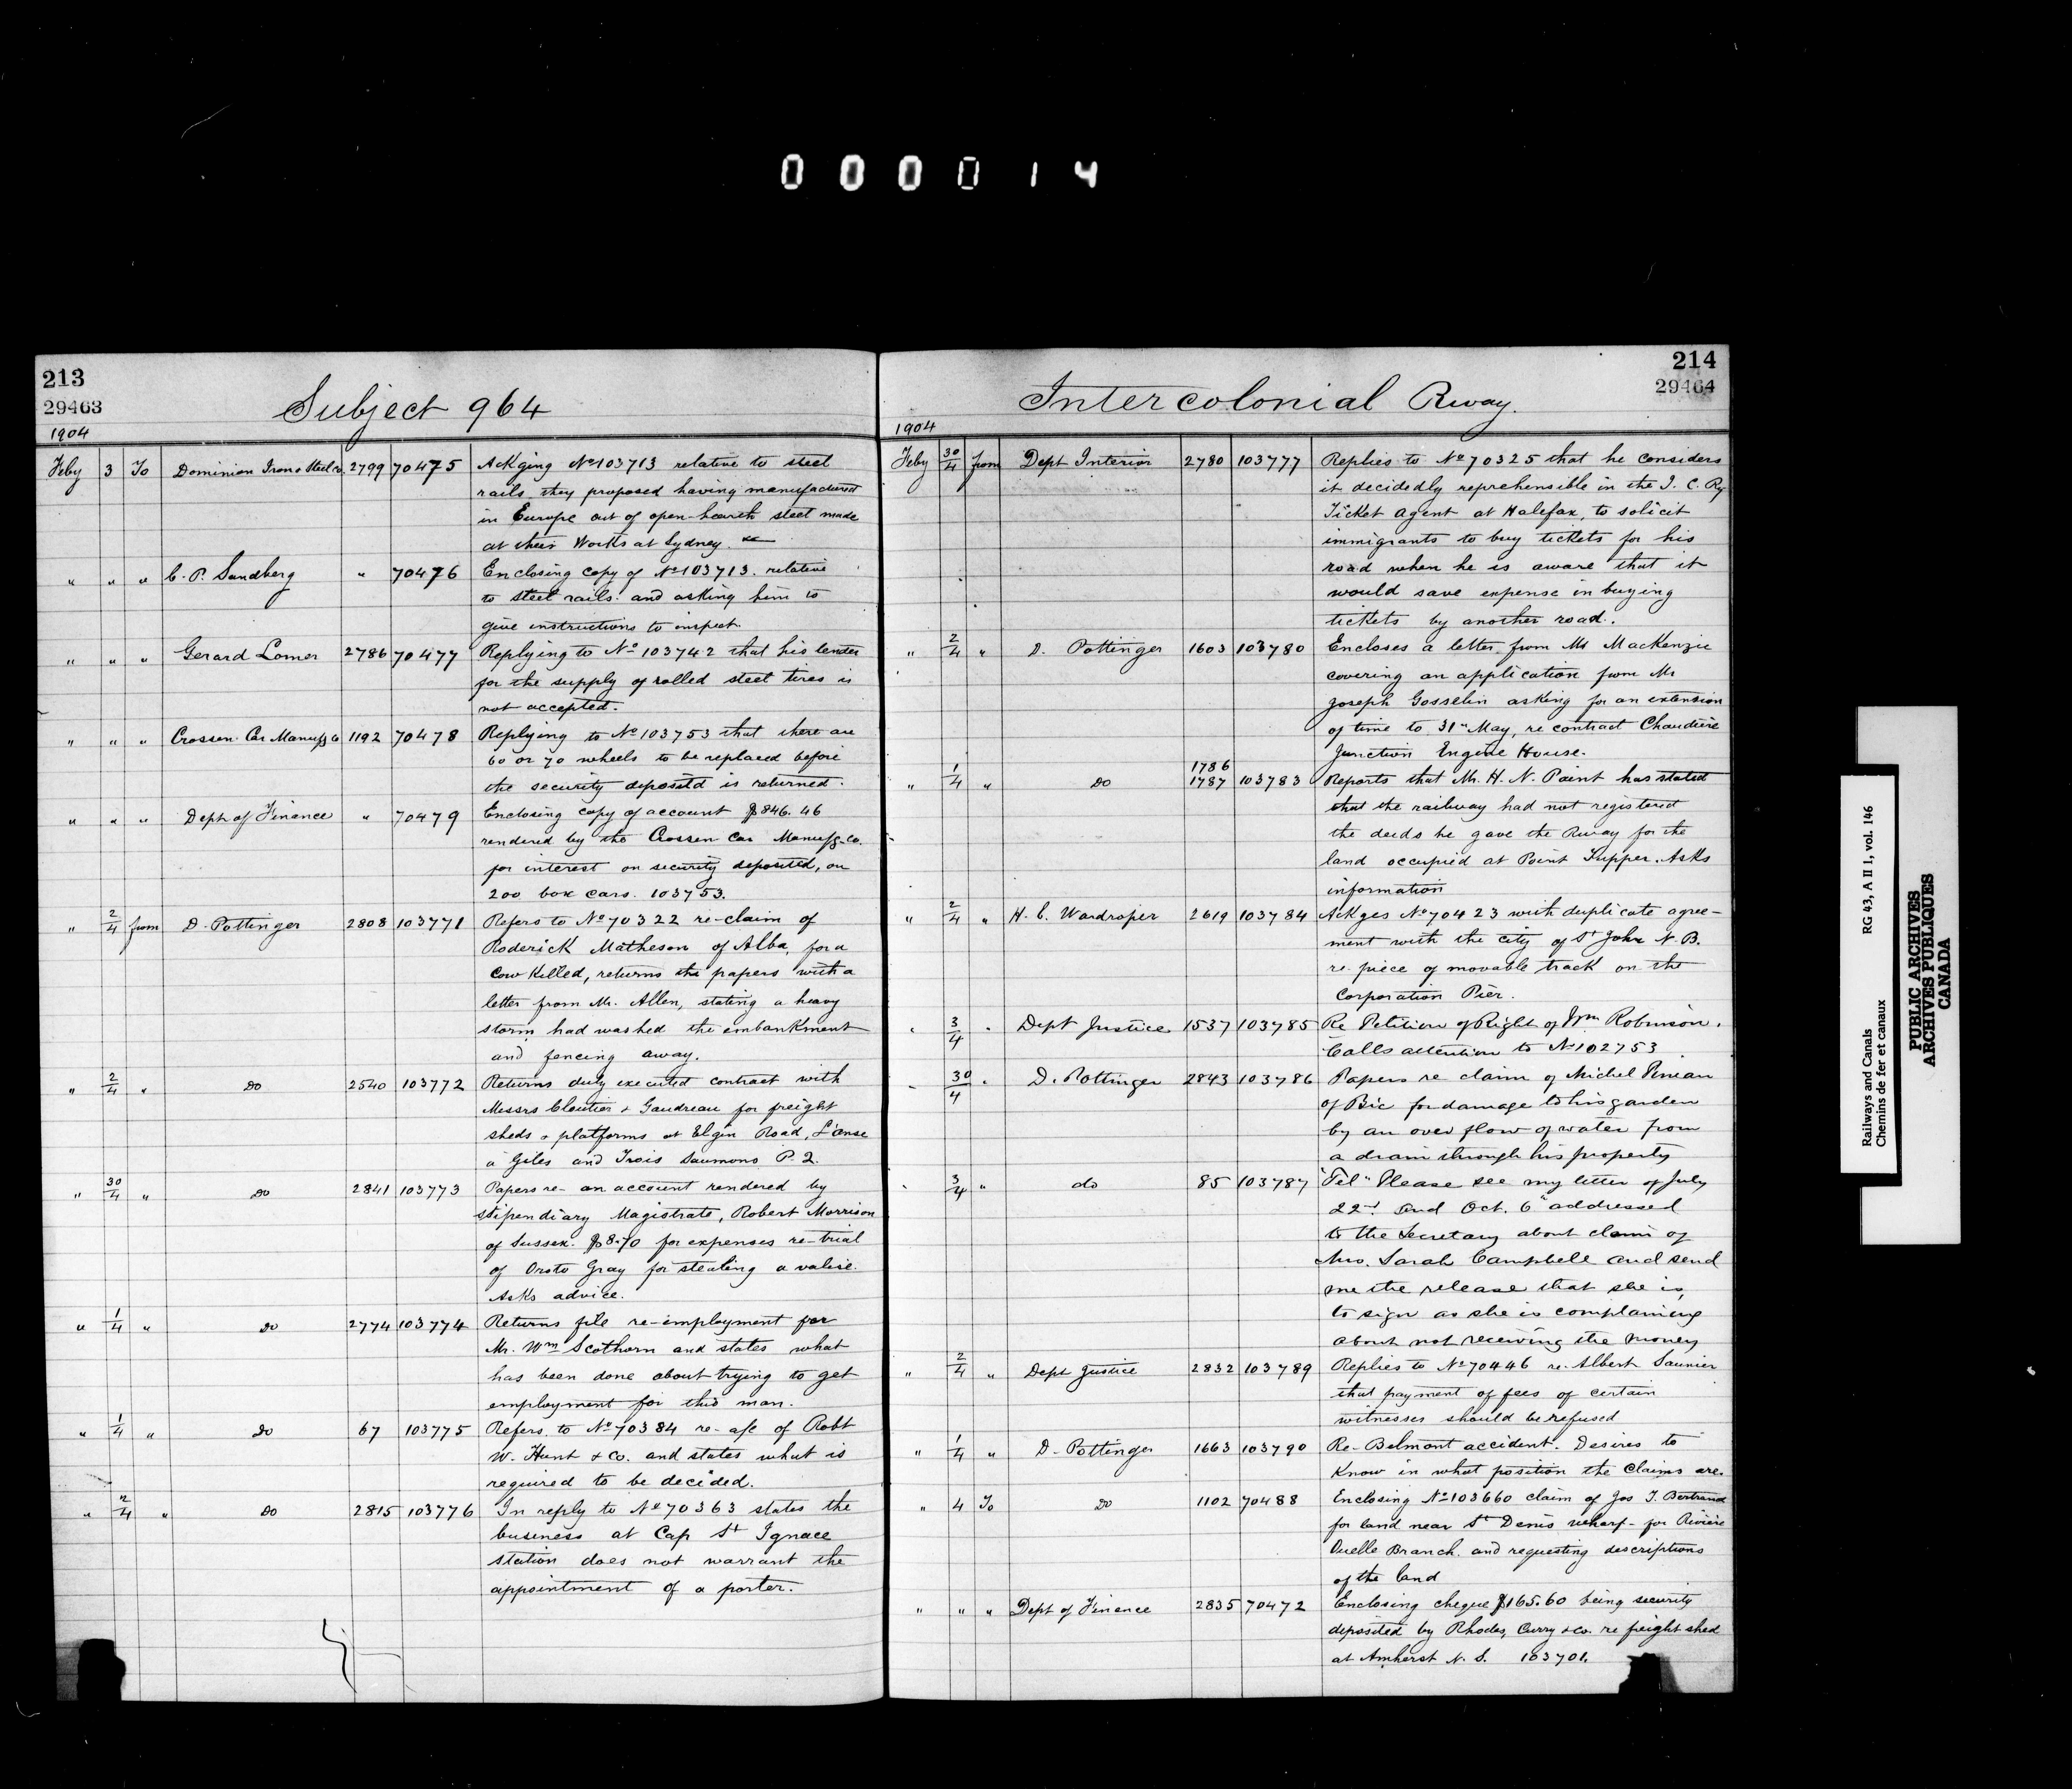 000014
213
29463
Subject 964
1904
Feby 3 To Dominion Iron & Steel Co. 2799 70475 Ackging No 103713 relative to steel
rails they proposed having manufactured
in Europe out of open-hearth steel made
at their Works at Sydney.
" " " C. P. Sandberg " 70476 Enclosing copy of No 103713. relative
to steel rails. and asking him to
give instructions to inspect.
" " " Gerard Lomer 2786 70477 Replying to No 103742 that his tender
for the supply of rolled steel tires is
not accepted.
" " " Crossen Car Manufg Co 1192 70478 Replying to No 103753 that there are
60 or 70 wheels to be replaced before
the security deposited is returned.
" " " Dept of Finance " 70479 Enclosing copy of account $846.46
rendered by the Crossen Car Manufg. Co.
for interest on security deposited, on
200 box cars. 103753.
" 2/4 from D. Pottinger 2808 103771 Refers to No 70322 re-claim of
Roderick Matheson of Alba, for a
cow killed, returns the papers with a
letter from Mr. Allen, stating a heavy
storm had washed the embankment
and fencing away.
" 2/4 " Do 2540 103772 Returns duly executed contract with
Messrs Cloutier & Gaudreau for freight
sheds & platforms at Elgin Road, L'anse
a Giles and Trois Saumons P. Q.
" 30/4 " Do 2841 103773 Papers re- an account rendered by
stipendiary Magistrate, Robert Morrison
of Sussex. $8.70 for expenses re-trial
of Gray for stealing a valise.
Asks advice.
" 1/4 " Do 2774 103774 Returns file re-employment for
Mr. Wm Scothorn and states what
has been done about trying to get
employment for this man.
" 1/4 " Do 67 103775 Refers to No 70384 re- a/c of Robt
W. Hunt & Co. and states what is
required to be decided.
" 2/4 " Do 2815 103776 In reply to No 70363 states the
business at Cap St Ignace
station does not warrant the
appointment of a porter.
214
29464
Intercolonial Rway.
1904
Feby 30/4 from Dept Interior 2780 103777 Replies to No 70325 that he considers
it decidedly reprehensible in the I. C. Ry
Ticket agent at Halifax, to solicit
immigrants to buy tickets for his
road when he is aware that it
would save expense in buying
tickets by another road.
" 2/4 " D. Pottinger 1603 103780 Encloses a letter from Mr MacKenzie
covering an application from Mr
Joseph Gosselin asking for an extension
of time to 31" May, re contract Chaudiere
Junction Engine House.
1786
" 1/4 " Do 1787 103783 Reports that Mr. H. N. Paint has stated
that the railway had not registered
the deeds he gave the Rway for the
land occupied at Point Tupper. Asks
information
" 2/4 " H. C. Wardroper 2619 103784 Ackges No 70423 with duplicate agree-
ment with the city of St John N.B.
re piece of movable track on the
Corporation Pier.
" 3/4 " Dept Justice 1537 103785 Re Petition of Right of Wm Robinson.
Calls attention to No 102753
" 30/4 " D. Pottinger 2843 103786 Papers re claim of Michel Pinean
of Bic for damage to his garden
by an over flow of water from
a drain through his property
" 3/4 " do 85 103787 "Tel" Please see my letter of July
22nd and Oct. 6" addressed
to the Secretary about claim of
Mrs. Sarah Campbell and send
me the release that she is,
to sign as she is complaining
about not receiving the money
" 2/4 " Dept Justice 2832 103789 Replies to No 70446 re- Albert Saunier
that payment of fees of certain
witnesses should be refused
" 1/4 " D. Pottinger 1663 103790 Re- Belmont accident. Desires to
Know in what position the claims are.
" 4 To Do 1102 70488 Enclosing No 103660 claim of Jos T. Bertrand
for land near St Denis wharf- for Riviere
Ouelle Branch. and requesting descriptions
of the land
" " " Dept of Finance 2835 70472 Enclosing cheque $165.60 being security
deposited by Rhodes, Curry & Co. re freight shed
at Amherst N. S. 103701.
Railways and Canals RG 43, A II 1, vol. 146
Chemins de fer et canaux
PUBLIC ARCHIVES
ARCHIVES PUBLIQUES
CANADA